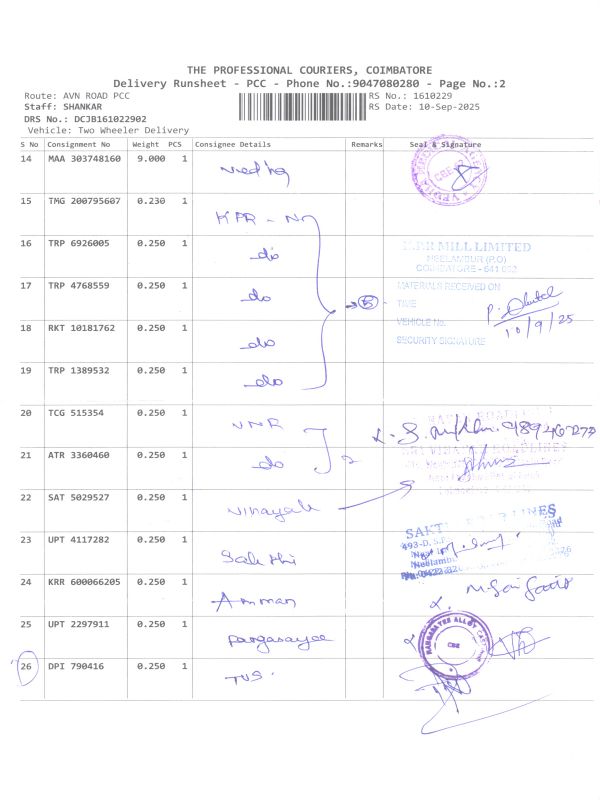 THE PROFESSIONAL COURIERS, COIMBATORE
Delivery Runsheet - PCC - Phone No.:9047080280 - Page No.:2
Route: AVN ROAD PCC
RS No.: 1610229
Staff: SHANKAR
RS Date: 10-Sep-2025
DRS No.: DCJB161022902
Vehicle: Two Wheeler Delivery
S No Consignment No Weight PCS Consignee Details Remarks Seal & Signature
14 MAA 303748160 9.000 1
15 TMG 200795607 0.230 1 KPR
16 TRP 6926005 0.250 1 do
K.P.R MILL LIMITED
NEELAMBUR (P.O)
COIMBATORE - 641 062
17 TRP 4768559 0.250 1 do
MATERIALS RECEIVED ON
TIME
VEHICLE No.
10/9/25
SECURITY SIGNATURE
18 RKT 10181762 0.250 1 do
19 TRP 1389532 0.250 1 do
20 TCG 515354 0.250 1 VNR
21 ATR 3360460 0.250 1 do 2
22 SAT 5029527 0.250 1 Vinayak
23 UPT 4117282 0.250 1 Sakthi
493-D, S.F.
Neelamb
24 KRR 600066205 0.250 1 Amman
25 UPT 2297911 0.250 1
CBE
26 DPI 790416 0.250 1 TVS